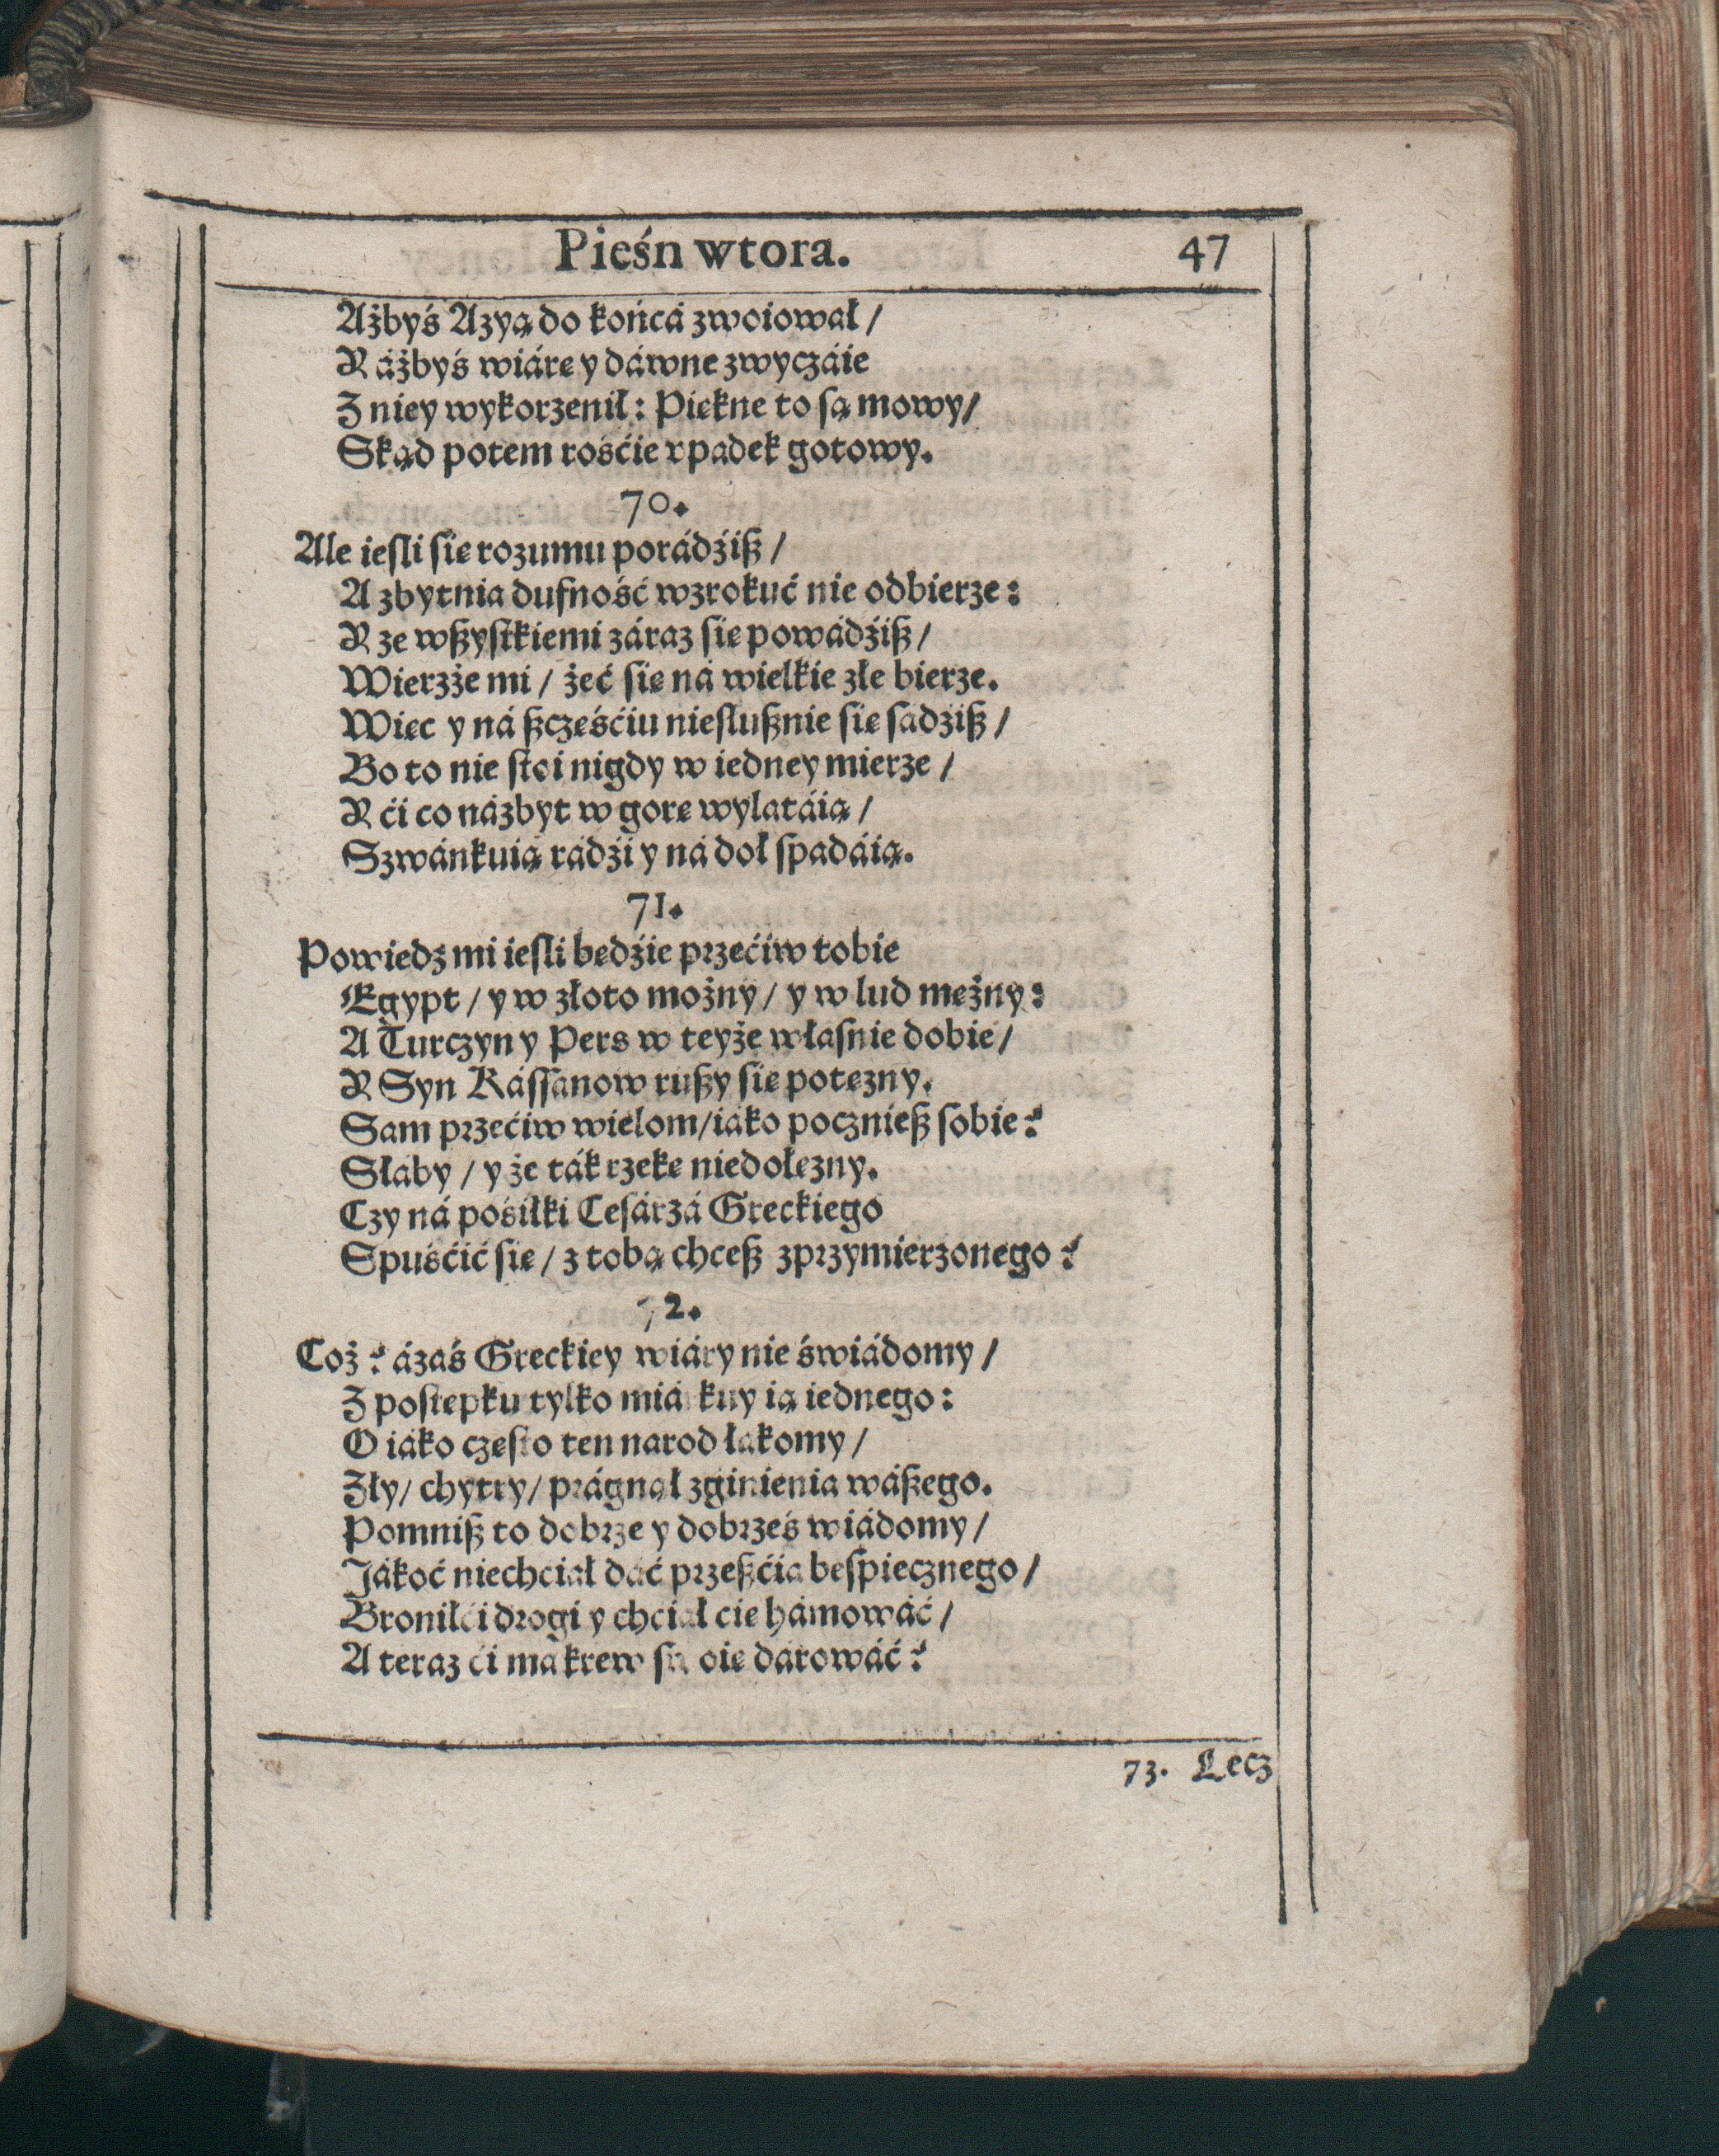 Pieśń wtora. 47
Ażbyś Azyą do końcá zwoiował /
Y áżbyś wiárę y dáwne zwyczáie
Z niey wykorzenił: Piękne to są mowy/
Skąd potem rośćie vpadek gotowy.
70.
Ale iesli się rozumu porádźisz /
A zbytnia dufność wzrokuć nie odbierze:
Y ze wszystkiemi záraz się powádźisz /
Wierzże mi / żeć się ná wielkie złe bierze.
Więc y ná szczęśćiu niesłusznie się sadźisz /
Bo to nie stoi nigdy w iedney mierze /
Y ći co názbyt w gorę wylatáią /
Szwánkuią rádźi y ná doł spadáią.
71.
Powiedz mi iesli będźie przećiw tobie
Egypt / y w złoto możny / y w lud mężny:
A Turczyn y Pers w teyże własnie dobie /
Y Syn Kássanow ruszy się potężny.
Sam przećiw wielom/iáko poczniesz sobie?
Słáby / y że ták rzekę niedołężny.
Czy ná pośiłki Cesárzá Greckiego
Spuśćić się / z tobą chcesz zprzymierzonego?
72.
Coż? ázaś Greckiey wiáry nie świádomy /
Z postępku tylko miárkuy ią iednego:
O iáko często ten narod łakomy /
Zły/ chytry/ prágnął zginienia wászego.
Pomnisz to dobrze y dobrześ wiádomy /
Jákoć niechciał dáć przeszćia bespiecznego /
Broniłći drogi y chciał cię hámowáć /
A teraz ći ma krew swoię dárowáć?
73. Lecz